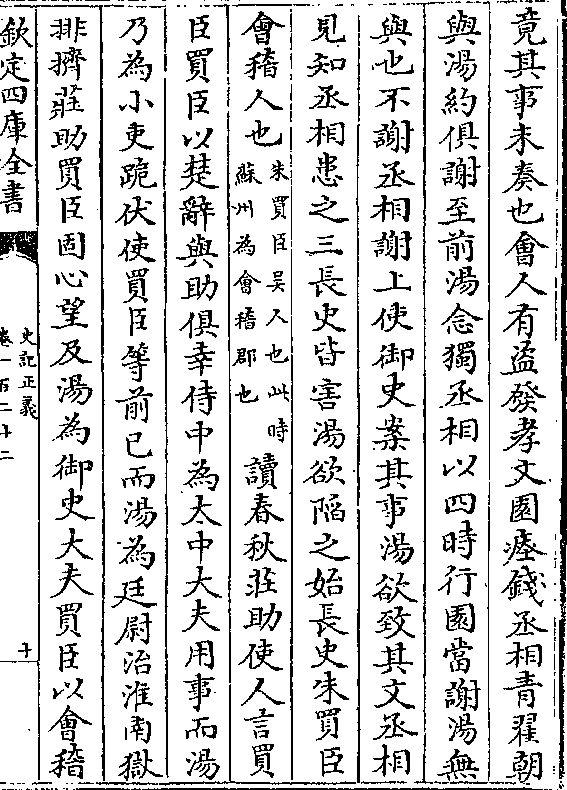 竟其事未奏也會人有盜發孝文園瘞錢丞相青翟朝
與湯約俱謝至前湯念獨丞相以四時行園當謝湯無
與也不謝丞相謝上使御史案其事湯欲致其文丞相
見知丞相患之三長史皆害湯欲陷之始長史朱買臣
會稽人也朱買臣吳人也此時蘇州為會稽郡也讀春秋莊助使人言買
臣買臣以楚辭與助俱幸侍中為太中大夫用事而湯
乃為小吏跪伏使買臣等前已而湯為廷尉治淮南獄
排擠莊助買臣固心望及湯為御史大夫買臣以會稽
欽定四庫全書
史記正義
卷一百二十二
十